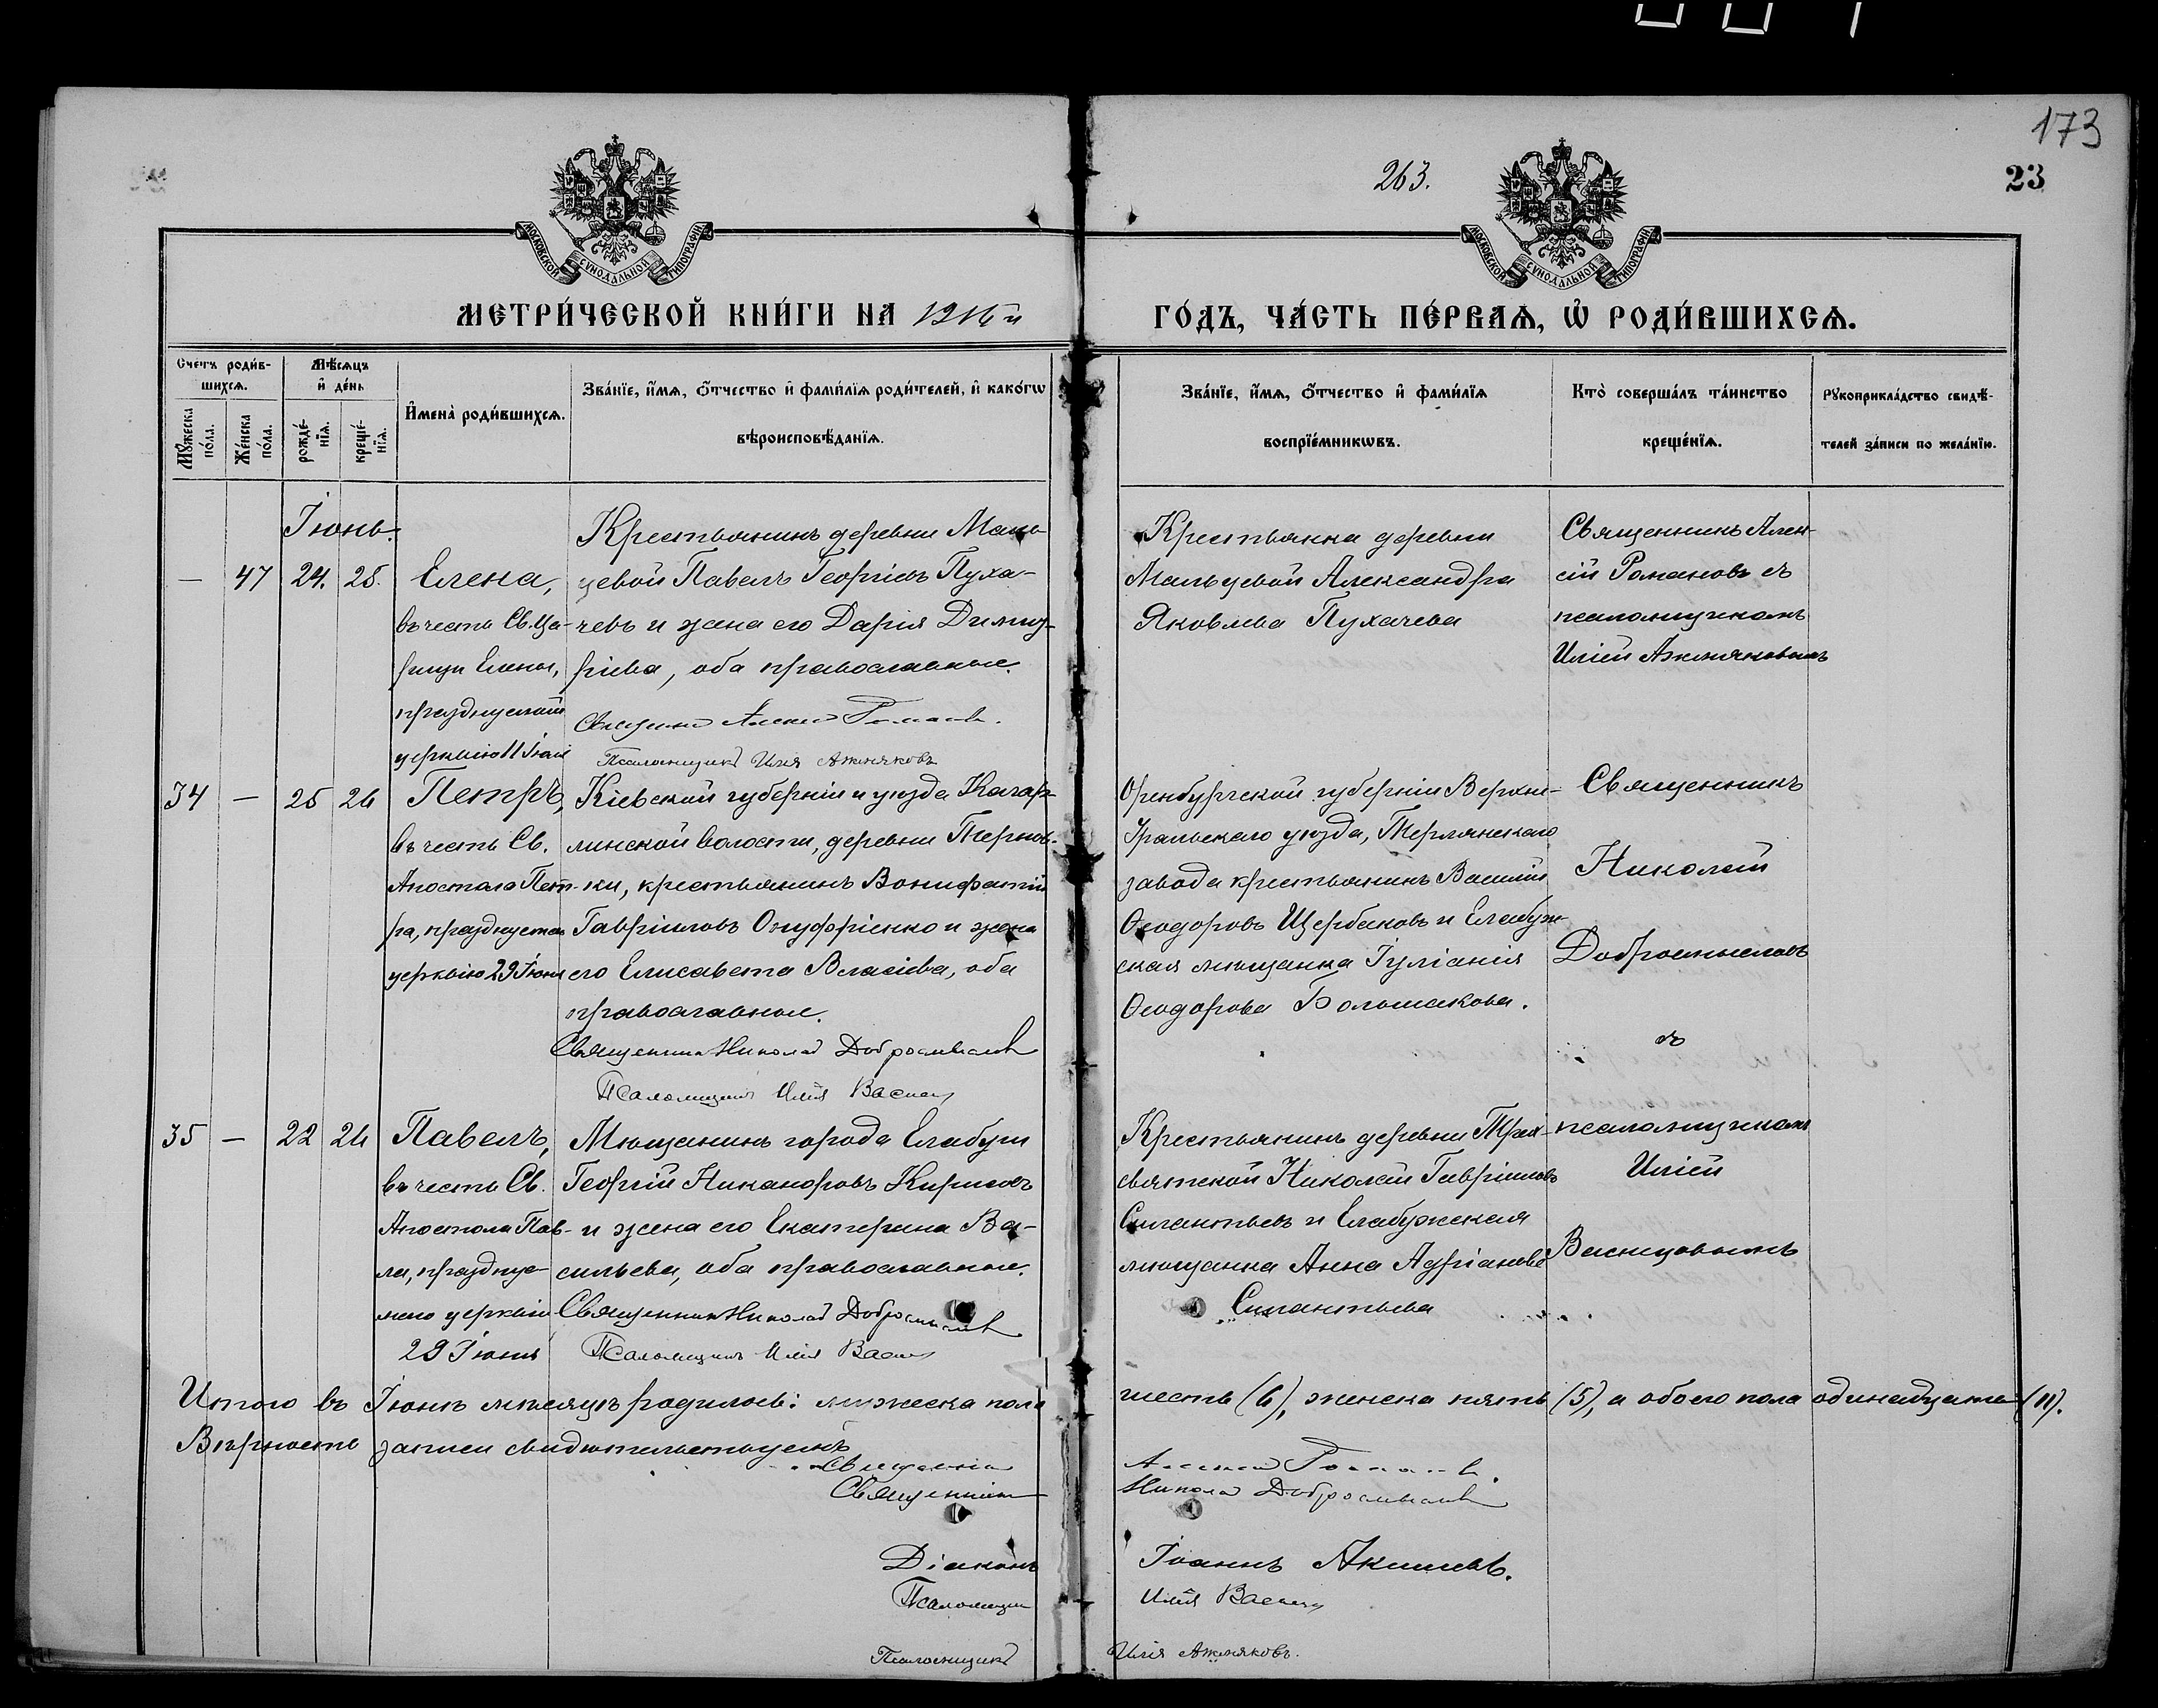 173
263.
23
МОСКОВСКОЙ СѴНОДАЛЬНОЙ ТИПОГРАФІИ
МОСКОВСКОЙ СѴНОДАЛЬНОЙ ТИПОГРАФІИ
МЕТРИ́ЧЕСКОЙ КНИ́ГИ НА 1916 й
ГО́ДЪ, ЧА́СТЬ ПЕ́РВАѦ, Ѡ҆ РОДИ́ВШИХСѦ.
Сче́тъ роди́в-
шихсѧ.
Мѣ́сѧцъ
и҆ де́нь
Мꙋ́жеска по́ла.
Же́нска по́ла.
рожде́-
нїѧ.
креще́-
нїѧ.
И҆мена̀ роди́вшихсѧ.
Зва́нїе, и҆́мѧ, ѻ҆́тчество и҆ фами́лїѧ роди́телей, и҆ како́гѡ
вѣроисповѣ́данїѧ.
Зва́нїе, и҆́мѧ, ѻ҆́тчество и҆ фами́лїѧ
воспрїе́мникѡвъ.
Кто̀ соверша́лъ та́инство
креще́нїѧ.
Рꙋкоприкла́дство свидѣ́-
телей за́писи по жела́нїю.
Іюнь.
— 47 24. 25.
Елена,
въ честь Св. Ца-
рицы Елены,
празднуемой
церквію 11 Іюля
Крестьянинъ деревни Маль-
цевой Павелъ Георгіевъ Пуха-
чевъ и жена его Дарія Димит-
ріева, оба православные.
Священникъ Алексій Романовъ.
Псаломщикъ Илія Ажмяковъ
Крестьянка деревни
Мальцевой Александра
Яковлева Пухачева
Священникъ Алек-
сій Романовъ съ
псаломщикомъ
Иліей Ажмяковымъ
34 — 25 26
Петръ,
въ честь Св.
Апостола Пет-
ра, празднуемаго
церквію 29 Іюня
Кіевской губерніи и уѣзда Кагар-
линской волости, деревни Тернов-
ки, крестьянинъ Вонифатій
Гавріиловъ Онуфріенко и жена
его Елисавета Власіева, оба
православные.
Священникъ Николай Добросмысловъ
Псаломщикъ Илія Васнецовъ
Оренбургской губерніи Верхне-
Уральскаго уѣзда, Тирлянскаго
завода крестьянинъ Василій
Ѳеодоровъ Щербаковъ и Елабуж-
ская мѣщанка Іуліанія
Ѳеодорова Большакова.
Священникъ
Николай
Добросмысловъ
съ
псаломщикомъ
Иліей
Васнецовымъ
35 — 22 26
Павелъ,
въ честь Св.
Апостола Пав-
ла, праздну-
емаго церквію
29 Іюня
Мѣщанинъ города Елабуги
Георгій Никаноровъ Кирилловъ
и жена его Екатерина Ва-
сильева, оба православные.
Священникъ Николай Добросмысловъ
Псаломщикъ Илія Васнецовъ
Крестьянинъ деревни Трех-
святской Николай Гавріиловъ
Силантьевъ и Елабужская
мѣщанка Анна Адріанова
Силантьева
Итого въ Іюнѣ мѣсяцѣ родилось: мужеска пола шесть (6), женска пять (5), а обоего пола одинадцать (11).
Вѣрность записи свидѣтельствуемъ
Священникъ Алексій Романовъ.
Священникъ Николай Добросмысловъ
Діаконъ Іоаннъ Акишевъ.
Псаломщикъ Илія Васнецовъ
Псаломщикъ Илія Ажмяковъ.